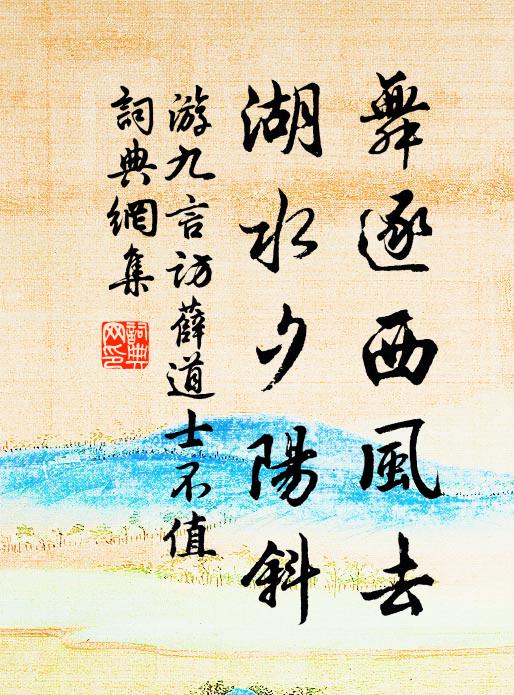 舞逐西風去
湖水夕陽斜
游九言訪薛道士不值
詞典網集
詞典
网印